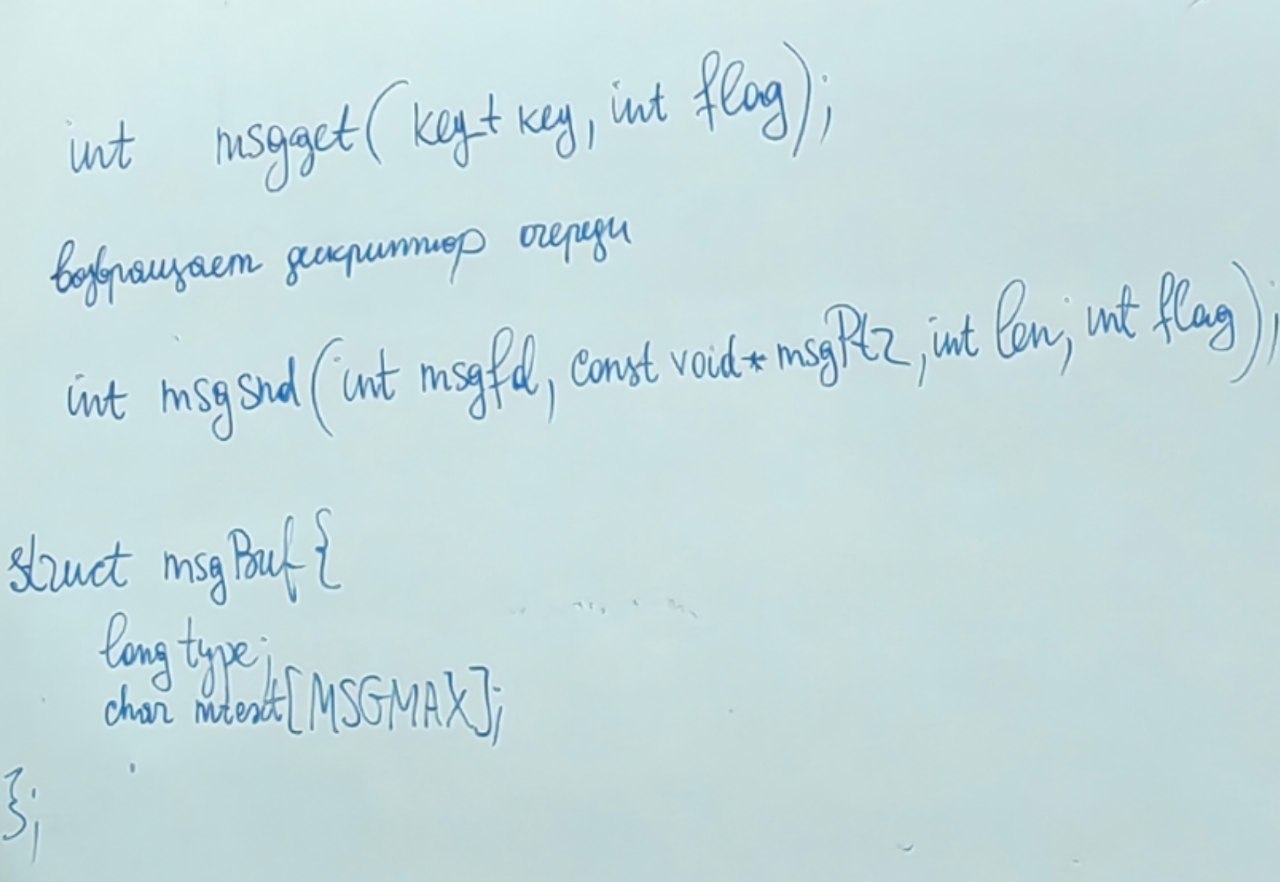 int msgget( key_t key, int flag);
возвращает дискриптор очереди
int msgsnd(int msgfd, const void* msgPtr, int len; int flag);
struct msgBuf{
long type;
char mtext[MSGMAX];
};